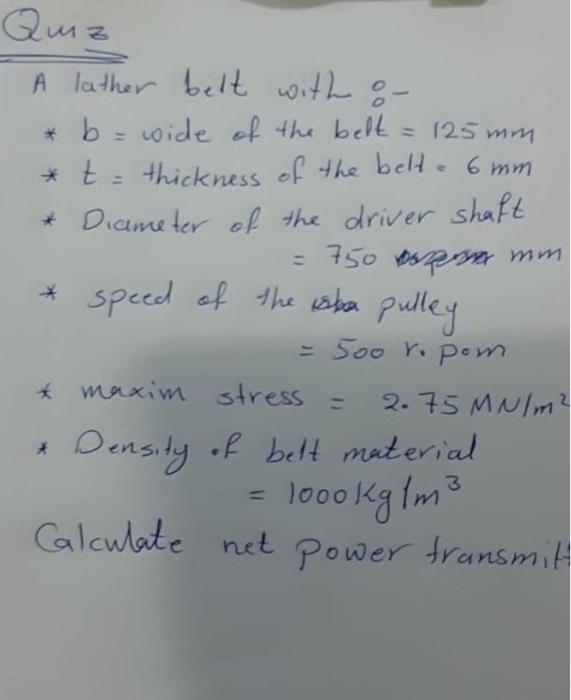 Quiz
A lather belt with :-
* b = wide of the belt = 125 mm
* t = thickness of the belt = 6 mm
* Diameter of the driver shaft
= 750 mm
* speed of the pulley
= 500 r.pom
* maxim stress = 2.75 MN/m²
* Density of belt material
= 1000 Kg/m³
Calculate net power transmitt